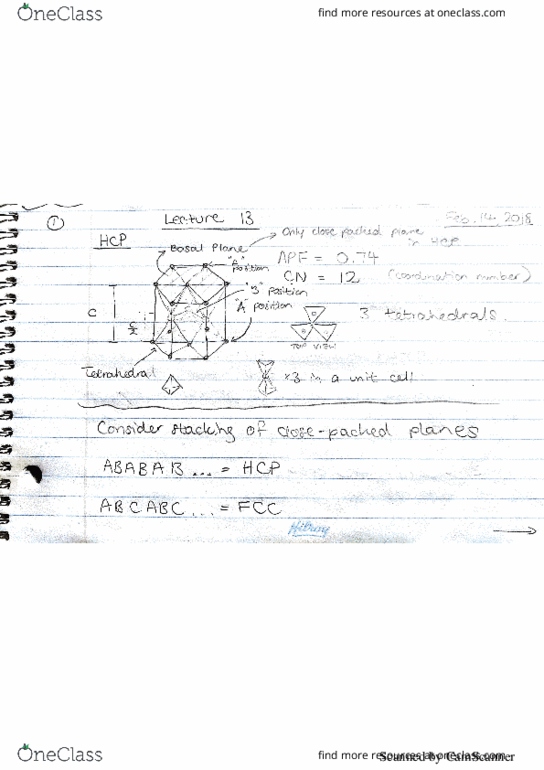 OneClass
find more resources at oneclass.com
1
Lecture 13
Feb. 14, 2018
HCP
Basal Plane
Only close packed plane
in HCP
"A"
position
APF = 0.74
CN = 12 (coordination number)
"B" position
"A" position
C
C/2
3 tetrahedrals.
TOP VIEW
Tetrahedral
x3 in a unit cell
Consider stacking of close-packed planes
ABABAB ... = HCP
ABCABC ... = FCC
Hilroy
OneClass
find more resources at oneclass.com
Scanned by CamScanner